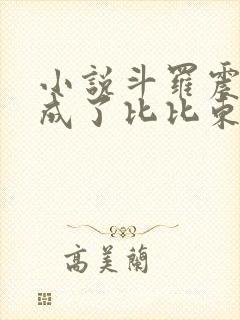 小說斗羅震
成了比比東
高美蘭